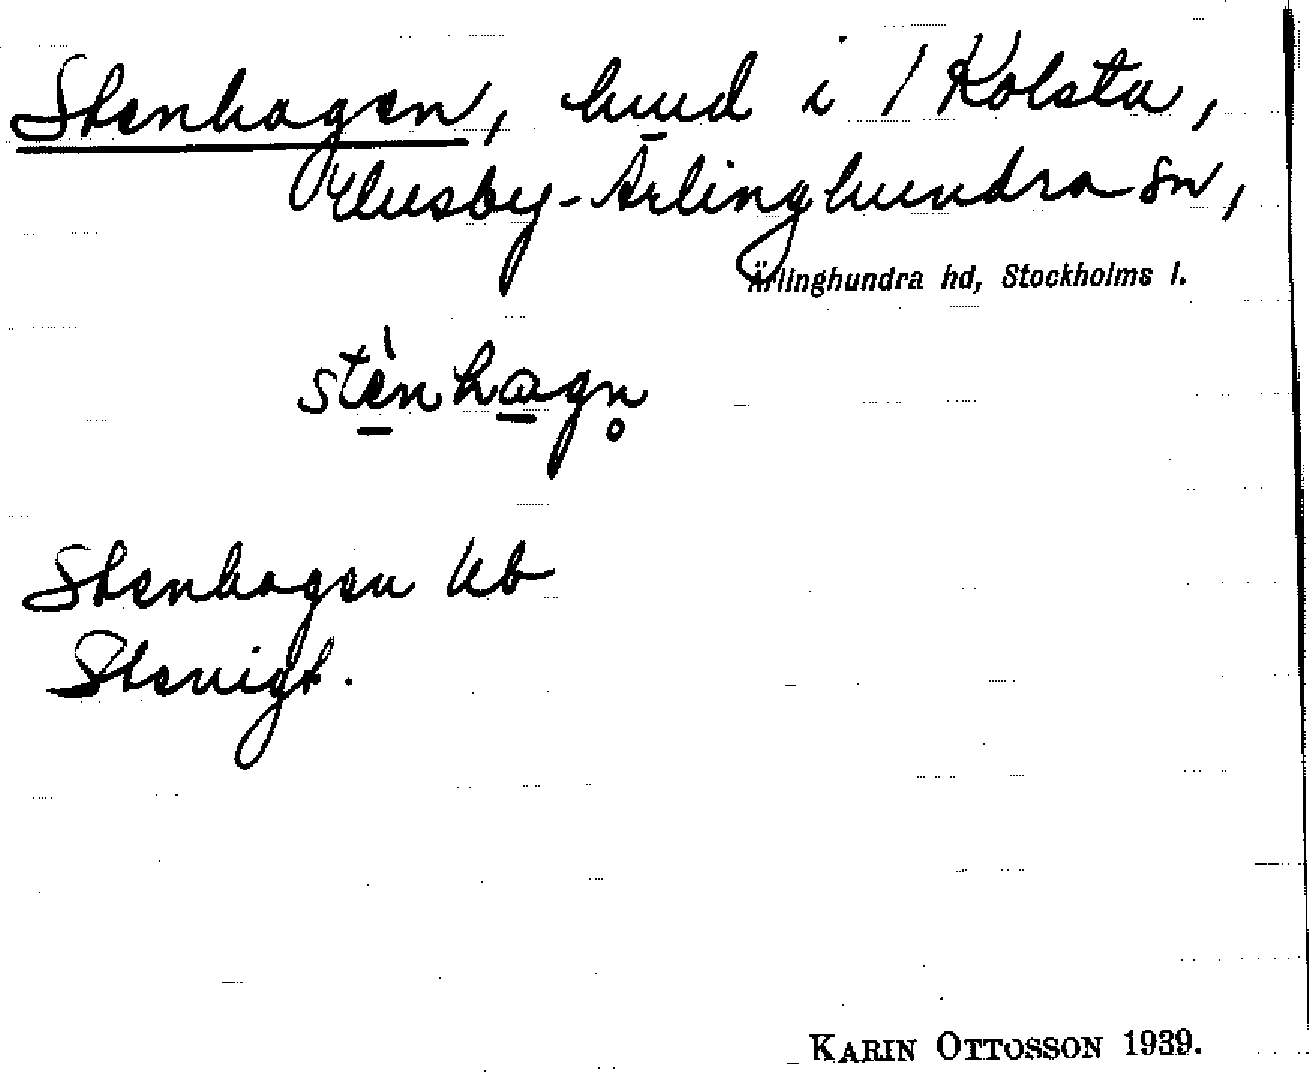 Stenhagen, hmd i / Kolsta,
Husby-Ärlinghundra sn,
Ärlinghundra hd, Stockholms l.
stènhagn̥
Stenhagen Ub
Stenigt.
KARIN OTTOSSON 1939.